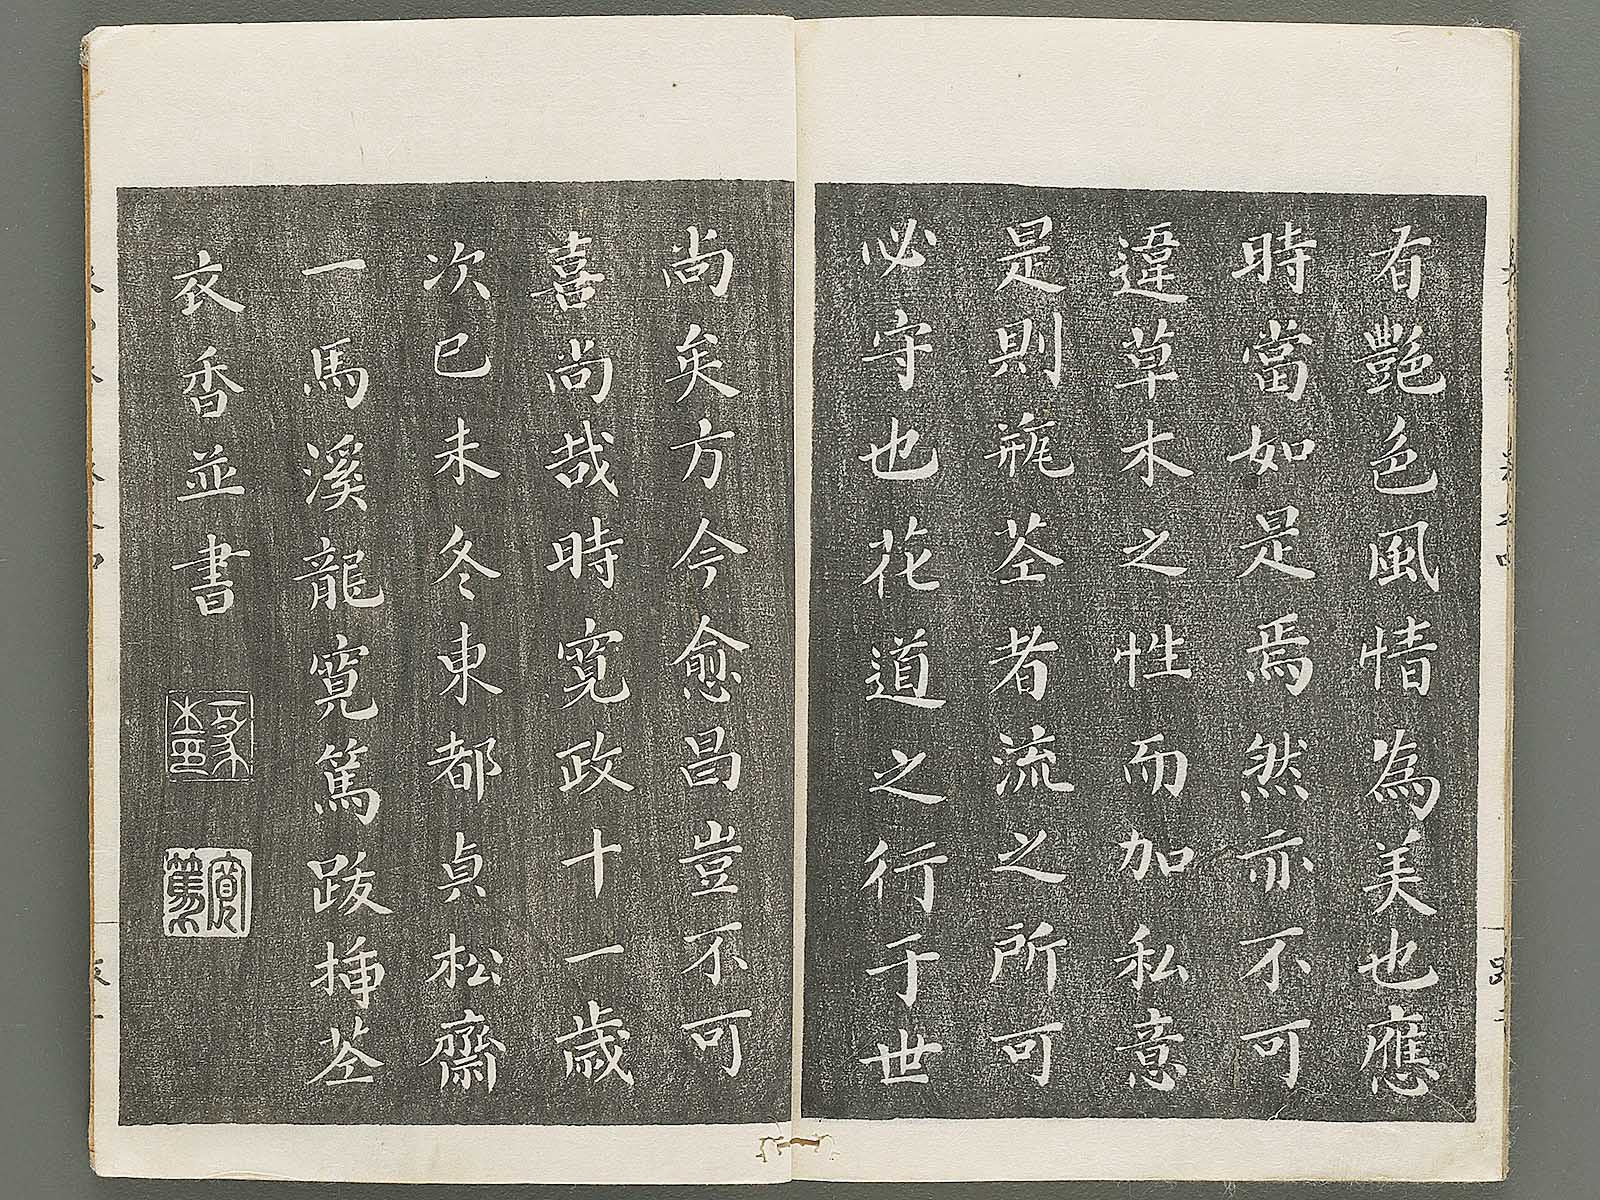 有艷色風情為美也應
時當如是焉然亦不可
違草木之性而加私意
是則瓶荃者流之所可
必守也花道之行于世
尚矣方今愈昌豈不可
喜尚哉時寛政十一歳
次己未冬東都貞松齋
一馬溪龍寛篤跋挿荃
衣香並書
寛篤